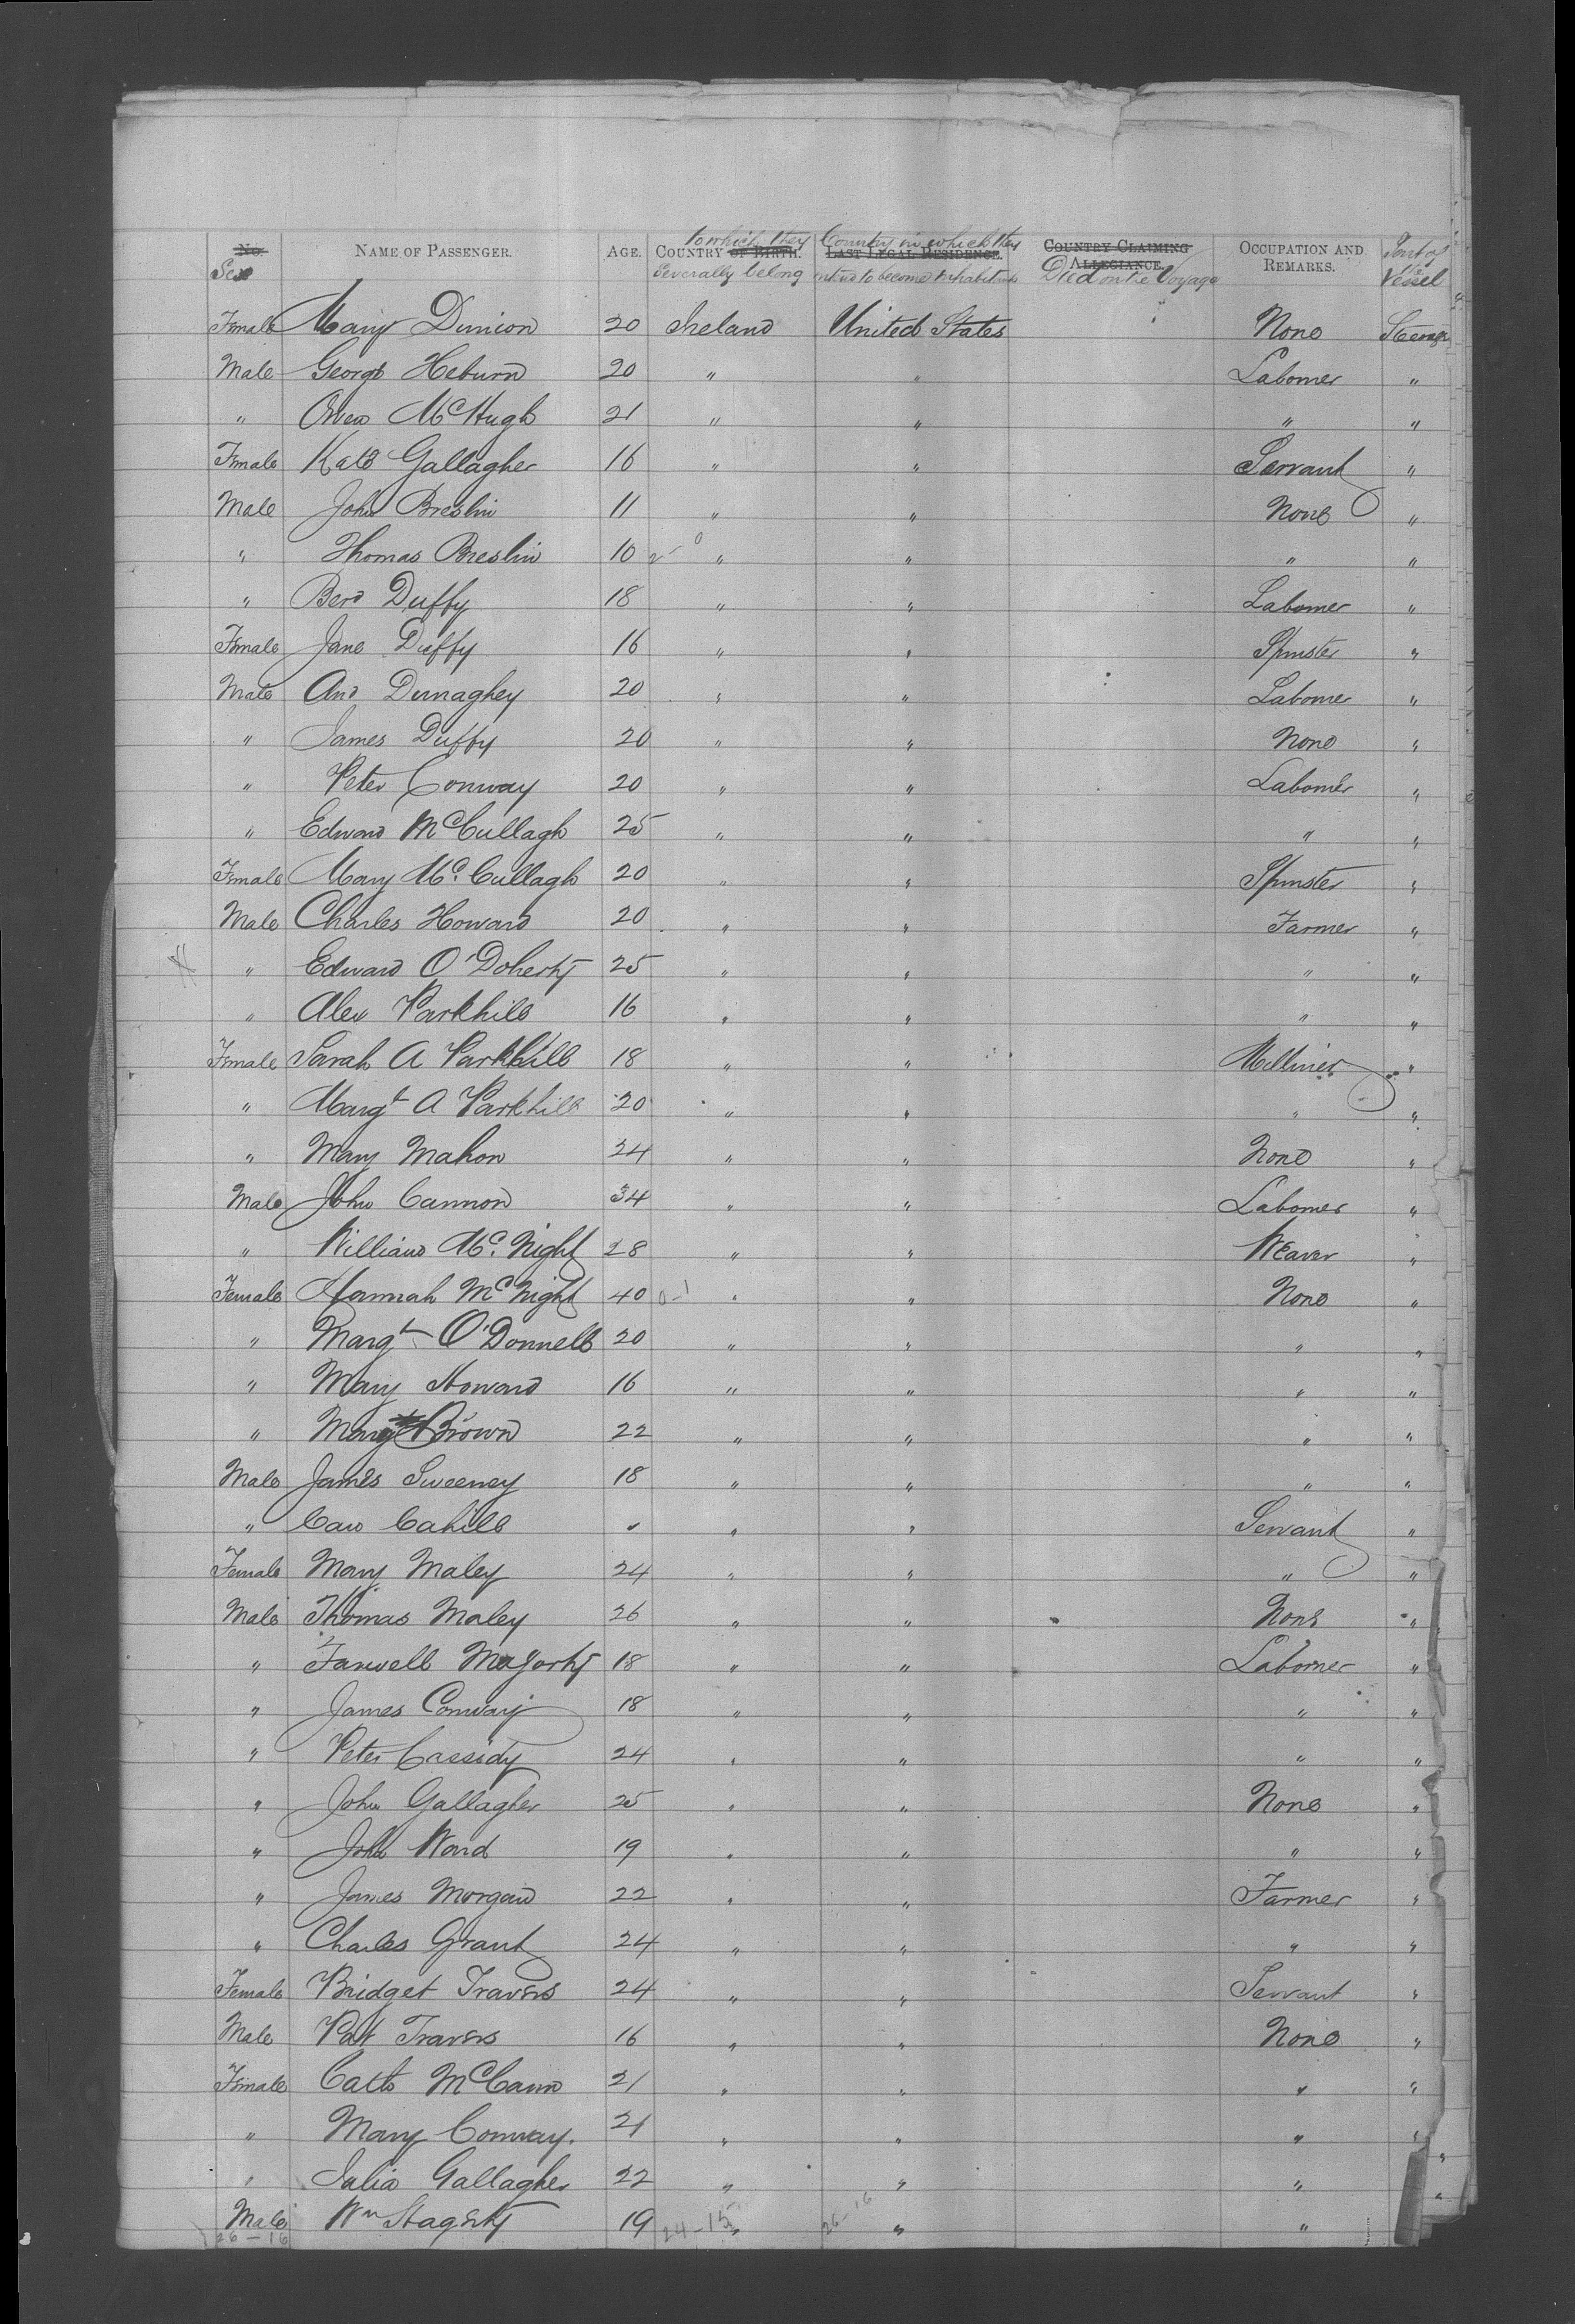 No. NAME OF PASSENGER. AGE. COUNTRY OF BIRTH. LAST LEGAL RESIDENCE. COUNTRY CLAIMING ALLEGIANCE. OCCUPATION AND REMARKS.
Sex to which they severally belong Country in which they intend to become inhabitants Died on the Voyage Part of the Vessel
Female Mary Dunion 20 Ireland United States None Steerage
Male George Heburn 20 " " Labourer "
" Owen McHugh 21 " " " "
Female Kate Gallagher 16 " " Servant "
Male John Breslin 11 " " None "
" Thomas Breslin 10 " " " "
" Bern Duffy 18 " " Labourer "
Female Jane Duffy 16 " " Spinster "
Male And Dunaghey 20 " " Labourer "
" James Duffy 20 " " None "
" Peter Conway 20 " " Labourer "
" Edward McCullagh 25 " " " "
Female Mary McCullagh 20 " " Spinster "
Male Charles Howard 20 " " Farmer "
" Edward O'Doherty 25 " " " "
" Alex Parkhill 16 " " " "
Female Sarah A Parkhill 18 " " Milliner "
" Margt A Parkhill 20 " " " "
" Mary Mahon 24 " " None "
Male John Cannon 34 " " Labourer "
" William Mc.Night 28 " " Weaver "
Female Hannah McNight 40 " " None "
" Margt O'Donnell 20 " " " "
" Mary Howard 16 " " " "
" Mary Brown 22 " " " "
Male James Sweeney 18 " " " "
" Cahill " " " Servant "
Female Mary Maley 24 " " " "
Male Thomas Maley 26 " " None "
" Farwell 18 " " Labourer "
" James Conway 18 " " " "
" Peter Cassidy 24 " " " "
" John Gallagher 25 " " None "
" John Ward 19 " " " "
" James Morgan 22 " " Farmer "
" Charles Grant 24 " " " "
Female Bridget Travers 24 " " Servant "
Male Pat Travers 16 " " None "
Female Cath McCann 21 " " " "
" Mary Conway. 21 " " " "
" Julia Gallagher 22 " " " "
Male Wm Hagerty 19 " " " "
26-16 24-15 26-16